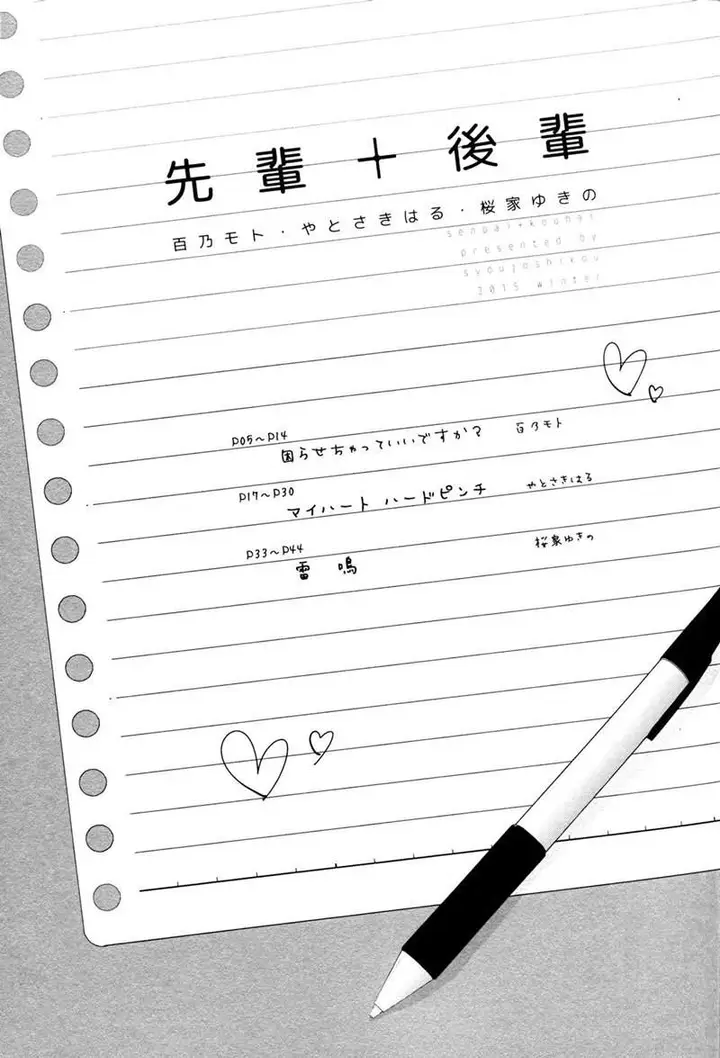 先輩+後輩
百乃モト・やとさきはる・桜家ゆきの
senpai+kouhai
presented by
syoujoshikou
2015 winter
P05〜P14
困らせちゃっていいですか? 百乃モト
P17〜P30
マイハート ハードピンチ やとさきはる
P33〜P44
雷鳴 桜家ゆきの